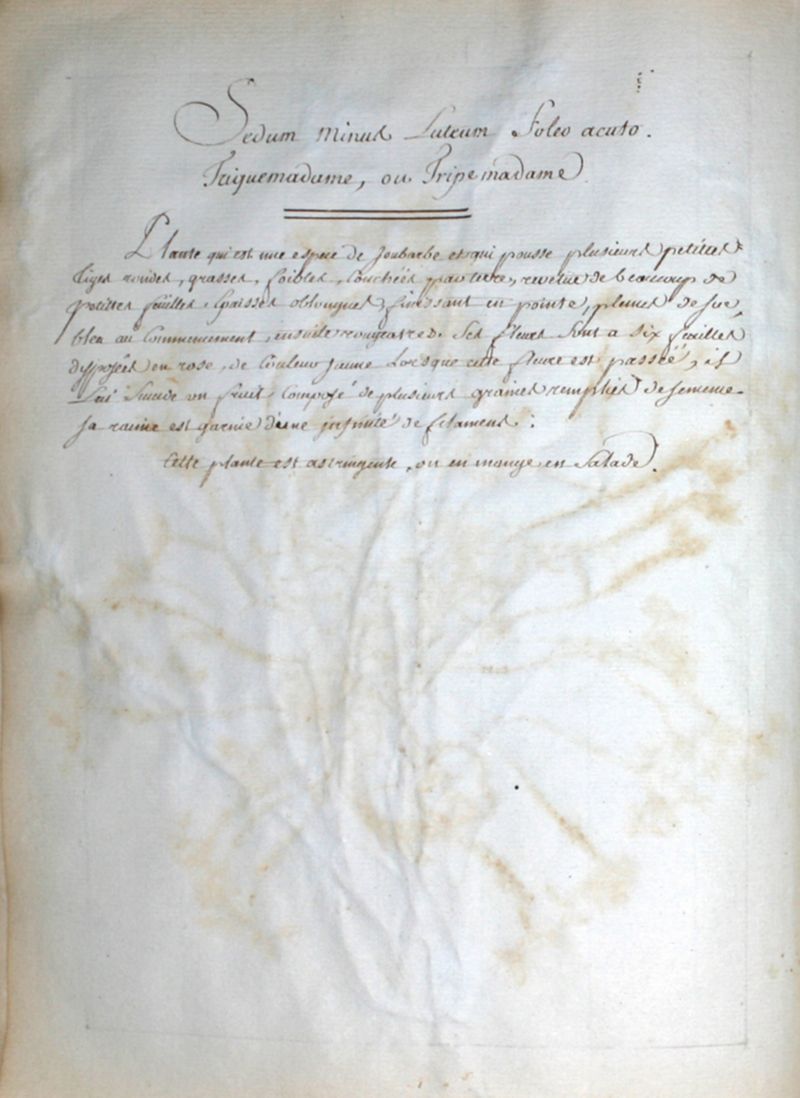 Sedum Minus Luteum Folio acuto.
Triquemadame, ou Tripemadame
Plante qui est une espece de Joubarbe et qui pousse plusieurs petittes
Tiges rondes, grasses, foibles, Couchées par terre, revetue de beaucoup de
petittes feuilles, Epaisses oblongues, finissant en pointe, pleines de sue
bleu au Commencement, ensuite rougeatre. Ses fleurs sont a six feuilles
disposées en rose, de Couleur jaune Lorsque cette fleure est passée, il
Lui Succede un fruit, Composé de plusieurs graines remplies de semence.
sa racine est garnie d'une infinité de filamens.
Cette plante est astringente, on en mange en Salade.